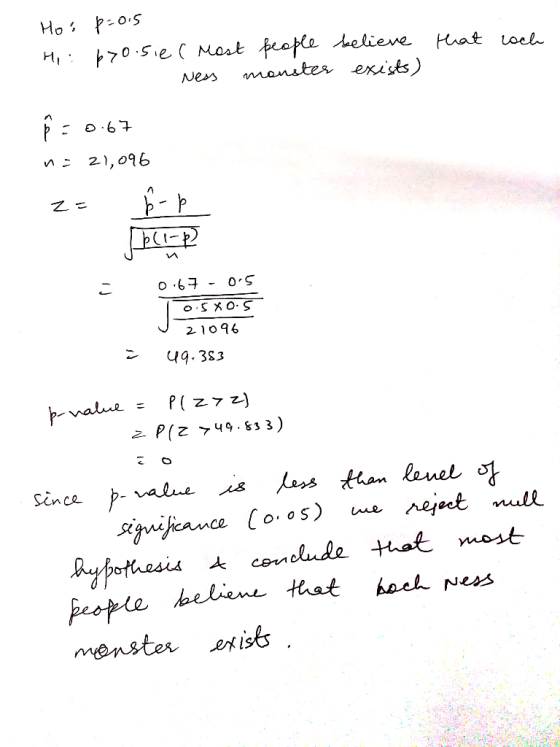 H₀ : p = 0.5
H₁ : p > 0.5 i.e ( Most people believe that Loch
Ness monster exists)
p̂ = 0.67
n = 21,096
Z = p̂ - p
√ p(1-p)
n
= 0.67 - 0.5
√ 0.5 x 0.5
21096
= 49.383
p-value = P( Z > z)
= P(Z > 49.833)
= 0
Since p-value is less than level of
significance (0.05) we reject null
hypothesis & conclude that most
people believe that Loch Ness
monster exists.